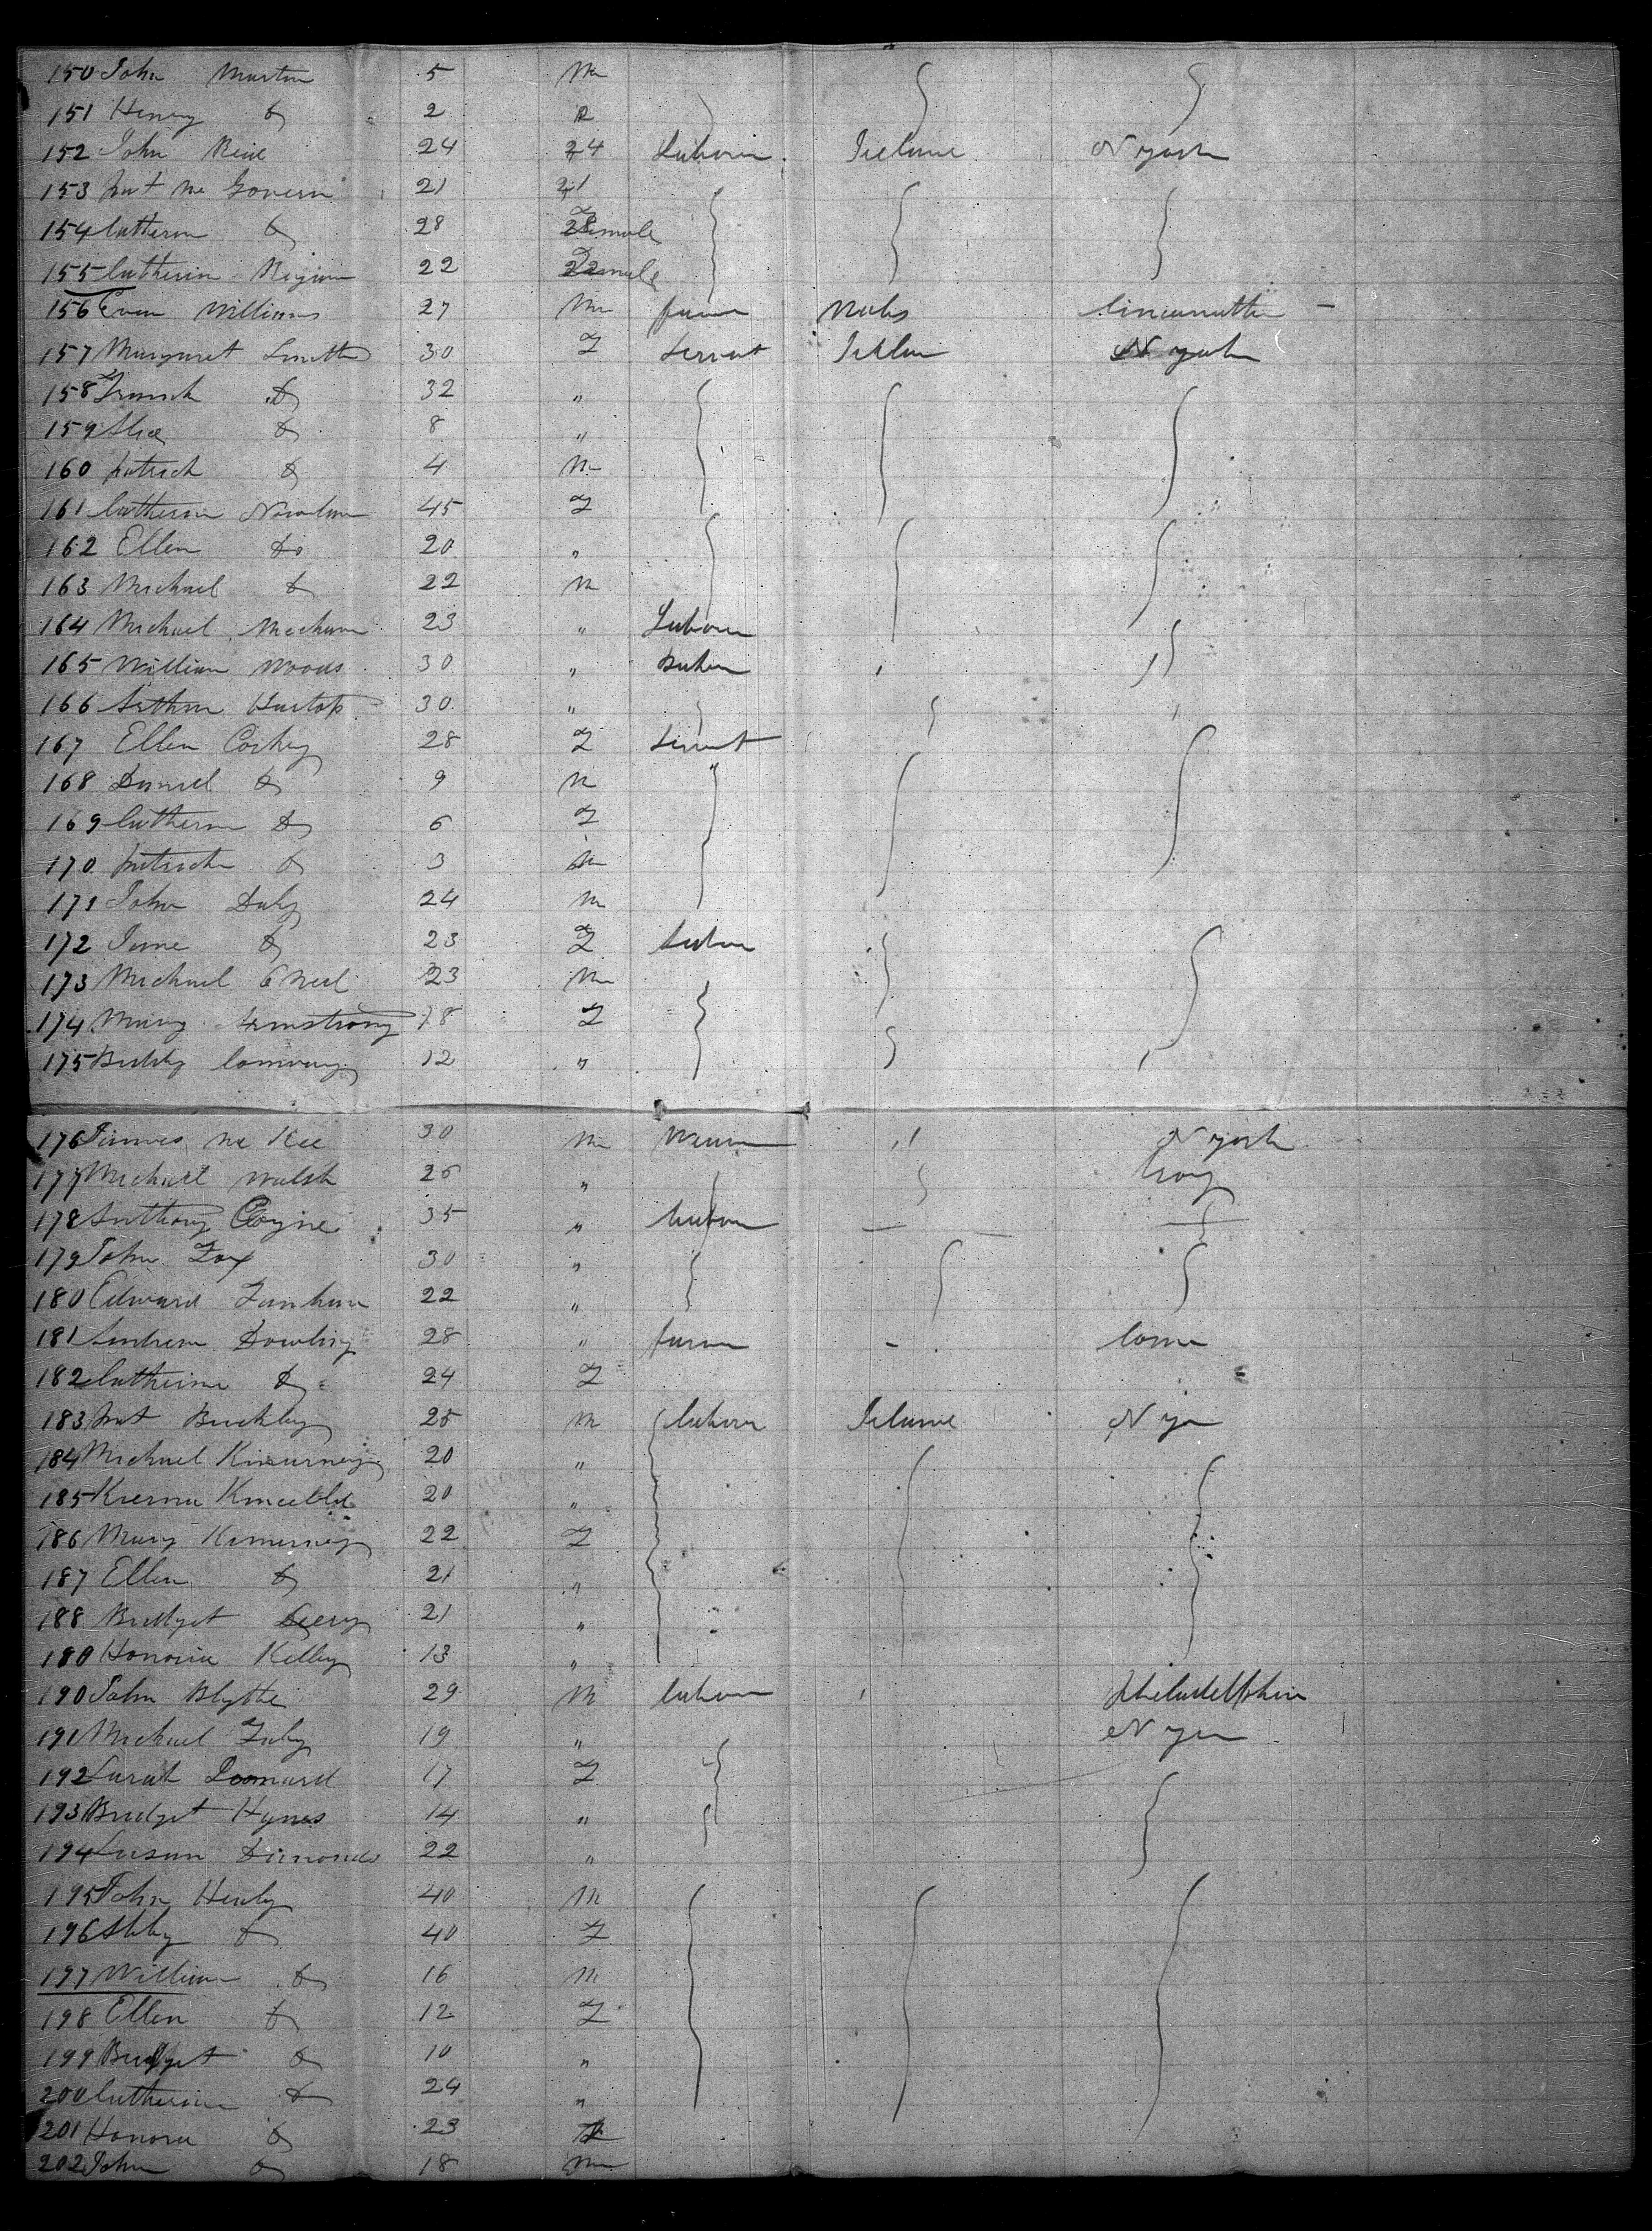 150 John Martin 5 M
151 Henry Do 2
152 John 24 24 Labourer Ireland N York
153 Pat Mc Govern 21 21
154 Catherine Do 28 Female
155 Catherine 22 Female
156 Evan Williams 27 M farmer Wales Cincinnatti
157 Margaret Smith 30 F Servant Ireland N York
158 Do 32 "
159 Alice Do 8 "
160 patrick Do 4 M
161 Catherine 45 F
162 Ellen Do 20 "
163 Michael Do 22 M
164 Michael 23 " Labourer
165 William Woods 30 " Baker
166 Arthur 30 "
167 Ellen 28 F Servant
168 Daniel Do 9 M
169 Catherine Do 6 F
170 patrick Do 3 M
171 John Daly 24 M
172 Jane Do 23 F Labour
173 Michael O Neil 23 M
174 Mary Armstrong 18 F
175 12 "
176 James Mc Kee 30 M N York
177 Michael Walsh 26 " Troy
178 Anthony Coyne 35 " Labour
179 John Fox 30 "
180 Edward 22 "
181 Andrew Dowling 28 " farmer
182 Catherine Do 24 F
183 Pat Buckley 25 M Labourer Ireland N Yor
184 Michael 20 "
185 20 "
186 Mary 22 F
187 Ellen Do 21 "
188 Bridget 21 "
180 Honoria Kelly 13 "
190 John Blythe 29 M Labour Philadelphia
191 Michael 19 " N Yor
192 Sarah 17 F
193 Bridget Hynes 14 "
194 Susan Dimond 22 "
195 John Healy 40 M
196 Abby Do 40 F
197 William Do 16 M
198 Ellen Do 12 F
199 Bridget Do 10 "
200 Catherine Do 24 "
201 Honora Do 23 F
202 John Do 18 M